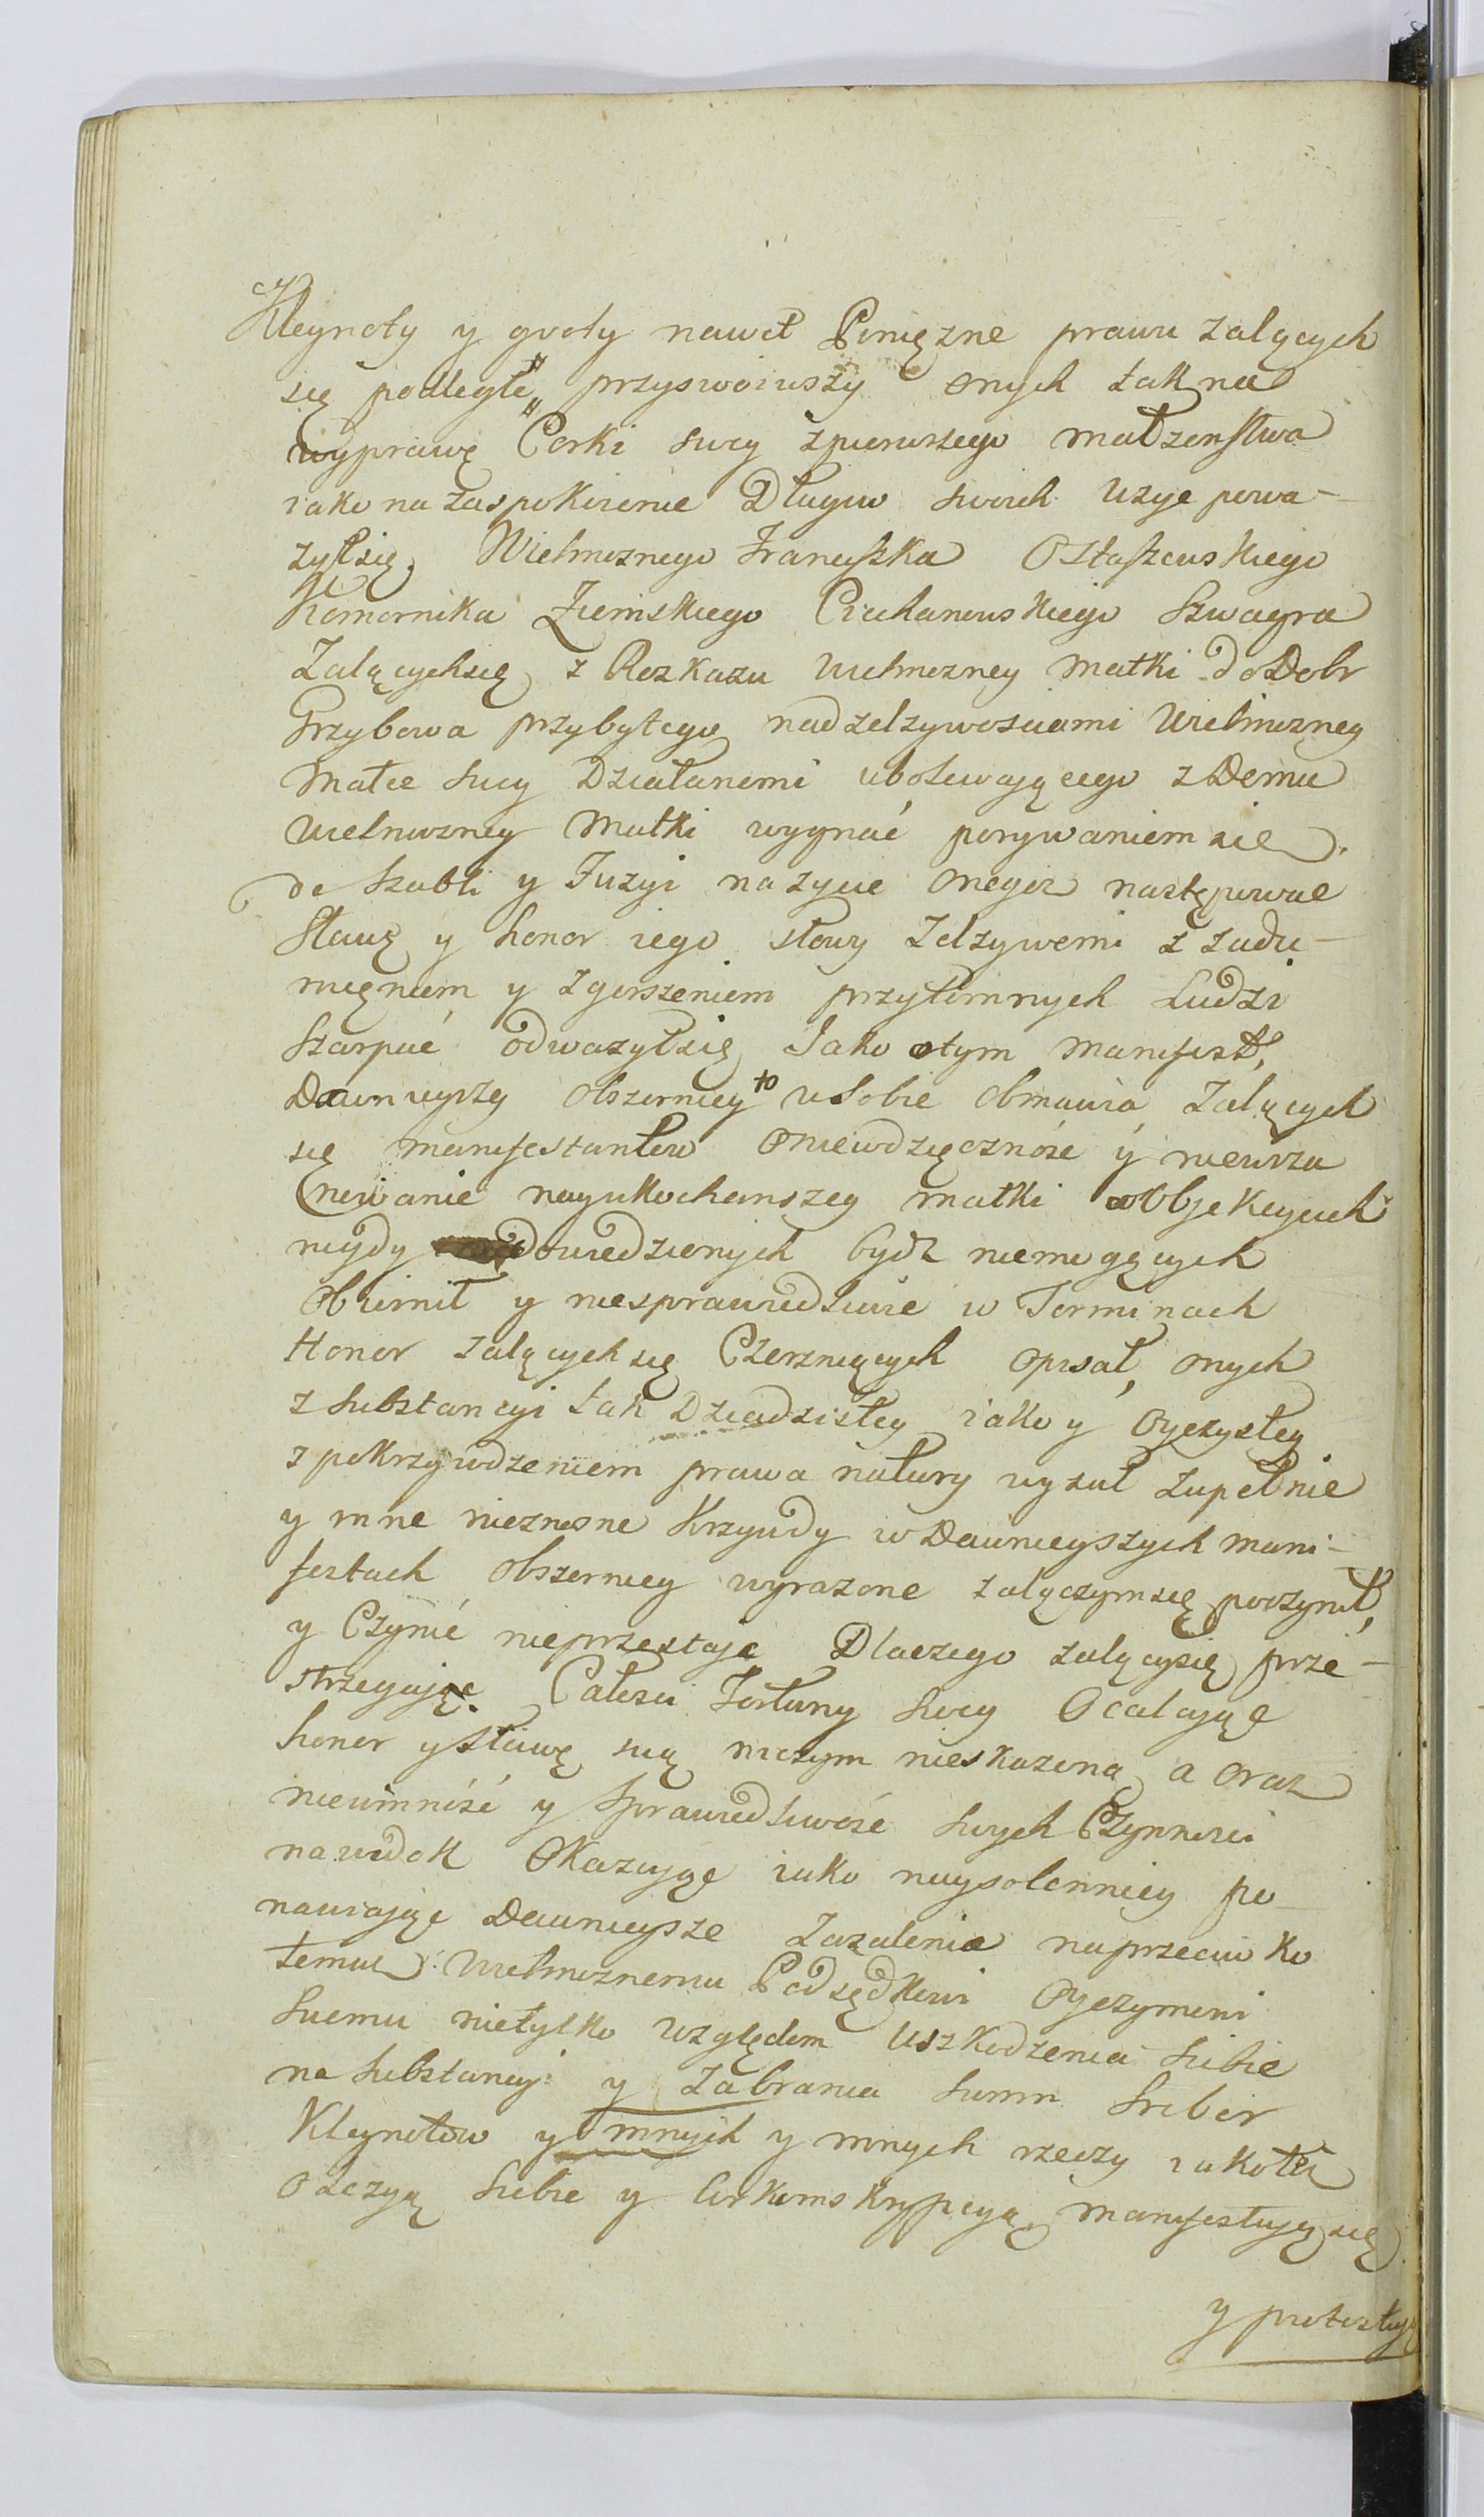 Kleynoty y gvoty nawet Pienięzne prawu zalących
się podległe przyswoiwszy onych tak na
wyprawę Corki swey zpierwszego małzenstwa
iako na zaspokoienie Długow swoich uzyc powa-
zyłsię, Wielmoznego Franciszka Ostaszewskiego
Komornika Ziemskiego Ciechanowskiego Szwagra
Zalącychsię z Rozkazu Wielmozney Matki do Dobr
Grzybowa przybyłego nad zelzywosciami Wielmozney
Matce swey Działanemi ubolewaiącego z Domu
Wielmozney Matki wygnać porywaniem sie
do Szabli y Fuzyi na zycie onegoz następowac
Sławę y honor iego słowy Zelzywemi z zadu-
mięniem y zgorszeniem przytomnych Ludzi
Szarpać odwazyłsię Jako otym manifest,
Dawnieyszy obszerniey to w sobie obmawia Zalących
się manifestantow o niewdzięcznośc y niewsza
nowanie nayukochanszey matki w Objekcyach
nigdy dowiedzionych bydz niemogących
Obwinił y niesprawiedliwie w Terminach
Honor zalącychsię Czerniących opisał, onych
z substancyi tak Dziadzistey iako y Oyczystey
z pokrzywdzeniem prawa natury wyzuł zupełnie
y inne nieznosne Krzywdy w Dawnieyszych mani-
festach obszerniey wyrazone zalączymsię poczynił,
y Czynić nieprzestaje Dlaczego zalącysię prze-
strzegając Całosci Fortuny swey Ocalając
honor y sławę swą niczym nieskazoną a oraz
niewinność y Sprawiedliwość swych Czynnosci
na widok Okazując iako naysolenniey po-
nawiając Dawnieysze Zazalenia naprzeciwko
temuz Wielmoznemu Podsędkowi Oyczymowi
swemu nietylko względem uszkodzenia siebie
na substancyi y Zabrania summ Srebr
Kleynotow y innych y innych rzeczy iakotez
o lezyą siebie y Cirkumskrypcyą manifestują się
y protestują